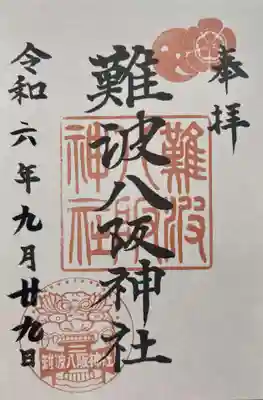 奉拝
難波八阪神社
難波
八阪
神社
令和六年九月廿九日
難波八阪神社